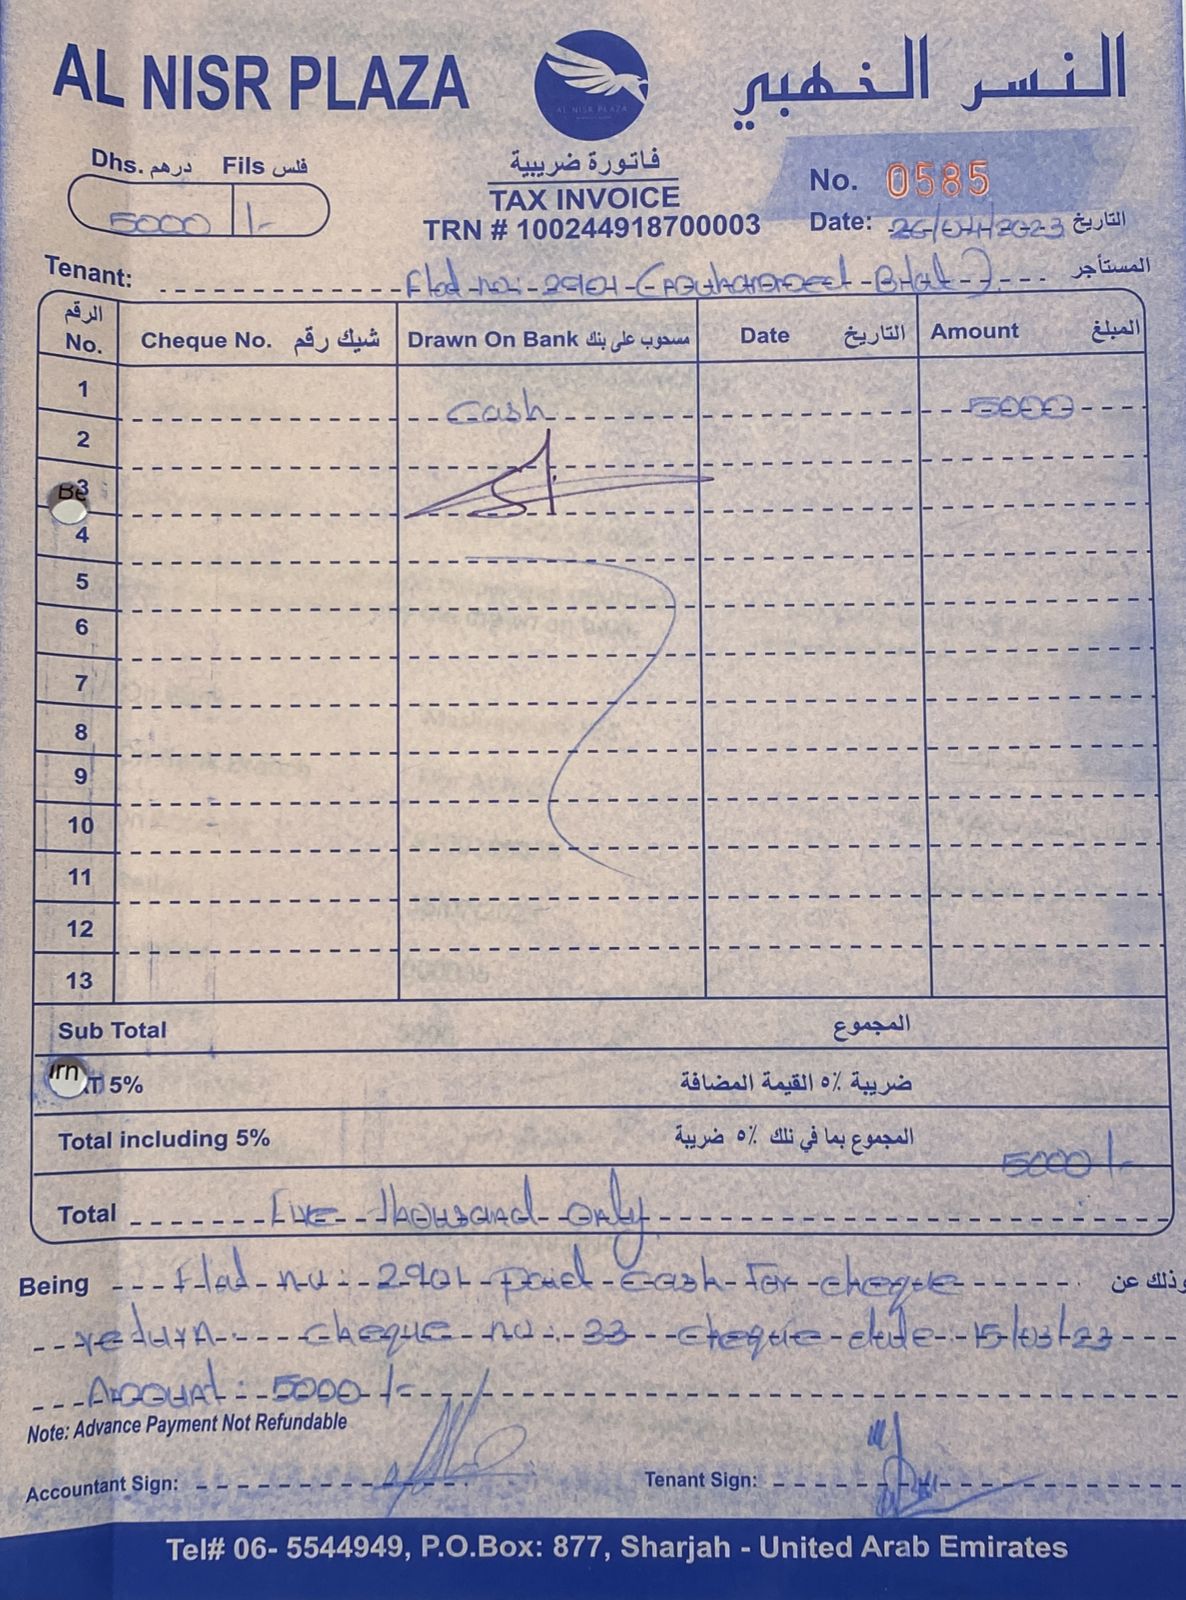 AL NISR PLAZA
AL NISR PLAZA
النسر الخهبي
Dhs. درهم Fils فلس
5000 /-
فاتورة ضريبية
TAX INVOICE
TRN # 100244918700003
No. 0585
Date: 26/04/2023 التاريخ
Tenant: Flat no: 2901 ( Bhat ) المستأجر
الرقم No. Cheque No. شيك رقم Drawn On Bank مسحوب على بنك Date التاريخ Amount المبلغ
1 Cash 5000
2
3
Be
4
5
6
7
8
9
10
11
12
13
Sub Total المجموع
irn
AT 5% ضريبة ٥٪ القيمة المضافة
Total including 5% المجموع بما في نلك ٥٪ ضريبة 5000/-
Total Five Thousand Only
Being Flat no: 2901 paid cash for cheque وذلك عن
return. cheque no: 33 cheque date 15/03/23
Amount: 5000/-
Note: Advance Payment Not Refundable
Accountant Sign: Tenant Sign:
Tel# 06- 5544949, P.O.Box: 877, Sharjah - United Arab Emirates